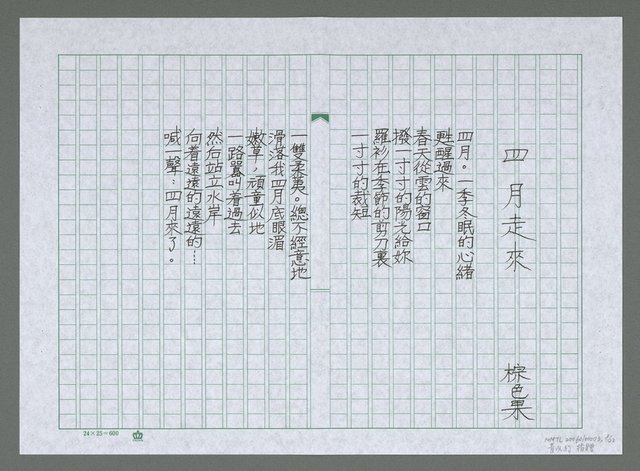 四月走來
棕色果
四月。一季冬眠的心緒
甦醒過來
春天從雲的窗口
撥一寸寸的陽光給妳
羅衫在季節的剪刀裏
一寸寸的裁短
一雙柔荑。總不經意地
滑落我四月底眼湄
嫩草，頑童似地
一路囂叫着過去
然后站立水岸
向着遠遠的遠遠的…
喊一聲：四月來了。
24×25=600